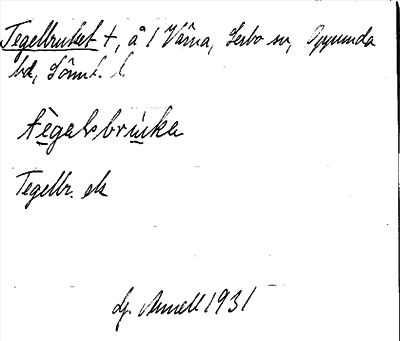 Tegelbruket +, å 1 Vårna, Lerbo sn, Oppunda
hd, Sörml. l.
tègəlsbrùka
Tegelbr. ek
af. Annell 1931